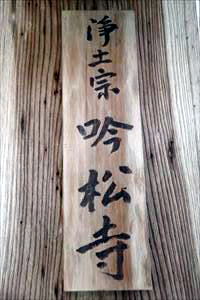 浄土宗 吟松寺